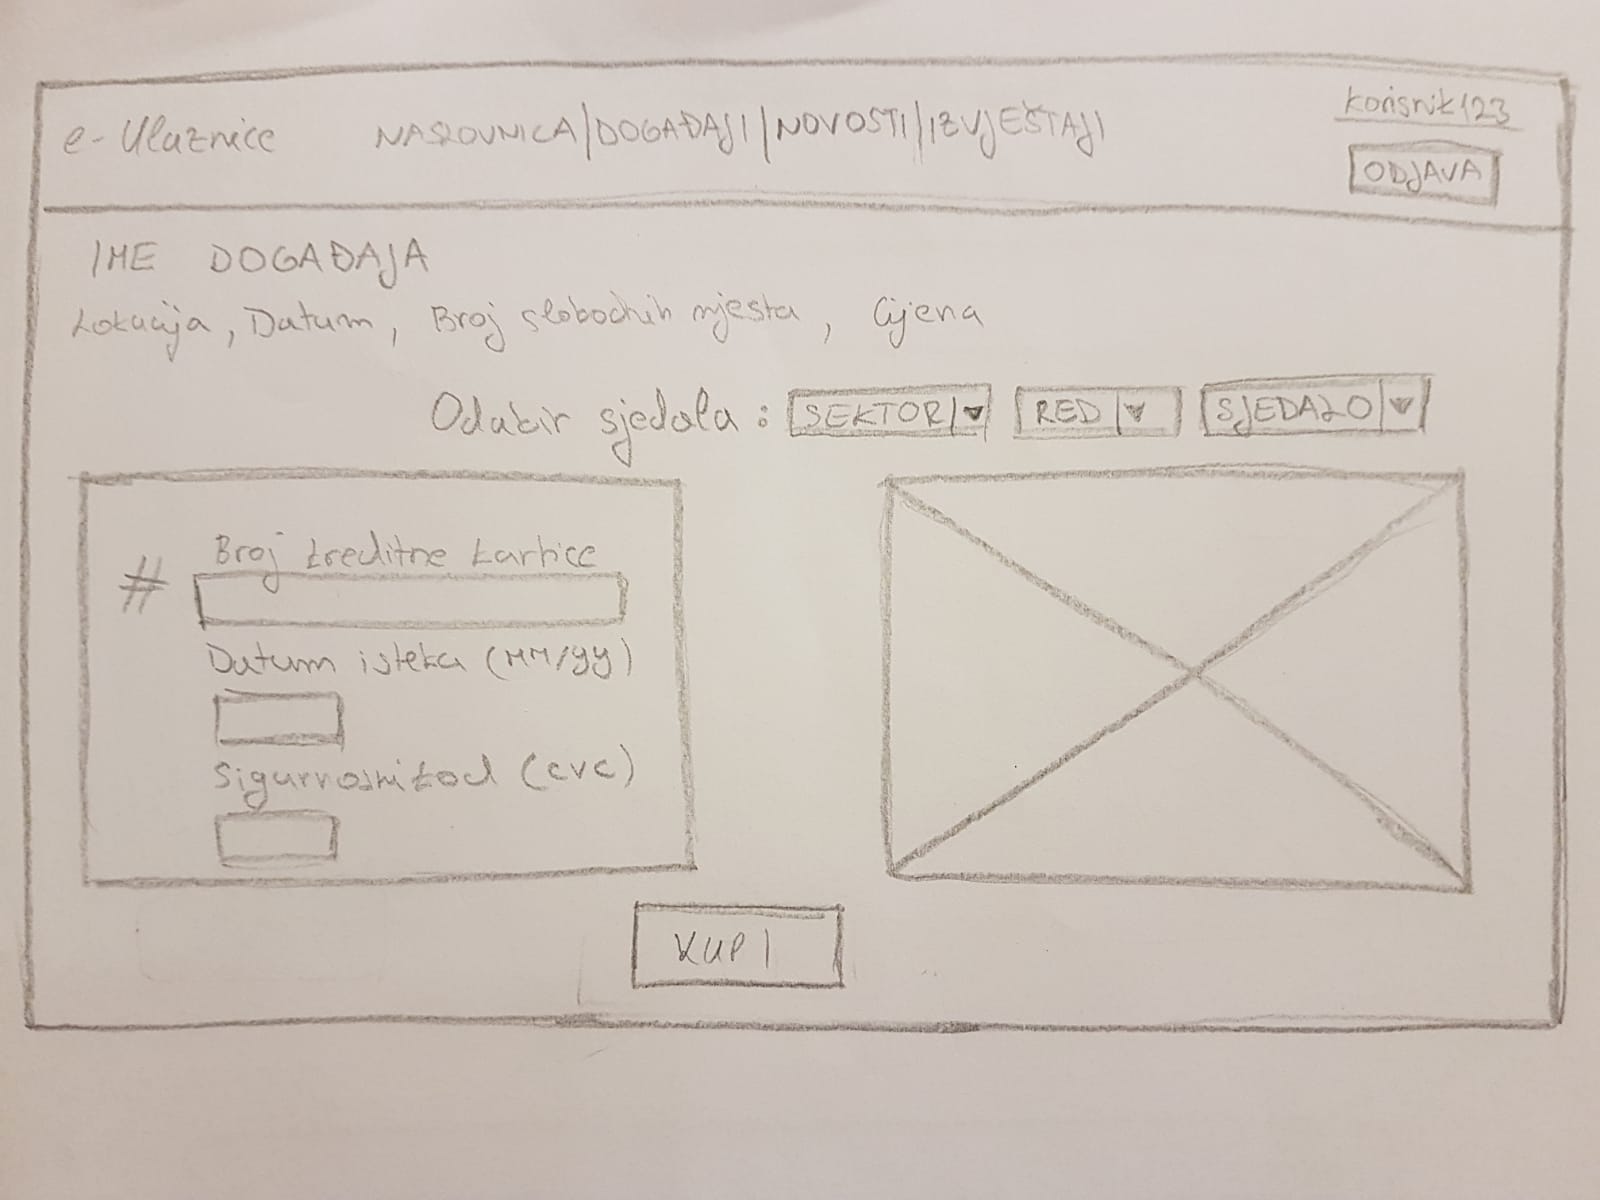 e-Ulaznice NASLOVNICA/DOGAĐAJI/NOVOSTI/IZVJEŠTAJI korisnik123
ODJAVA
IME DOGAĐAJA
Lokacija, Datum, Broj slobodnih mjesta, Cijena
Odabir sjedala: SEKTOR RED SJEDALO
Broj kreditne kartice
#
Datum isteka (MM/gg)
Sigurnosni kod (cvc)
KUPI